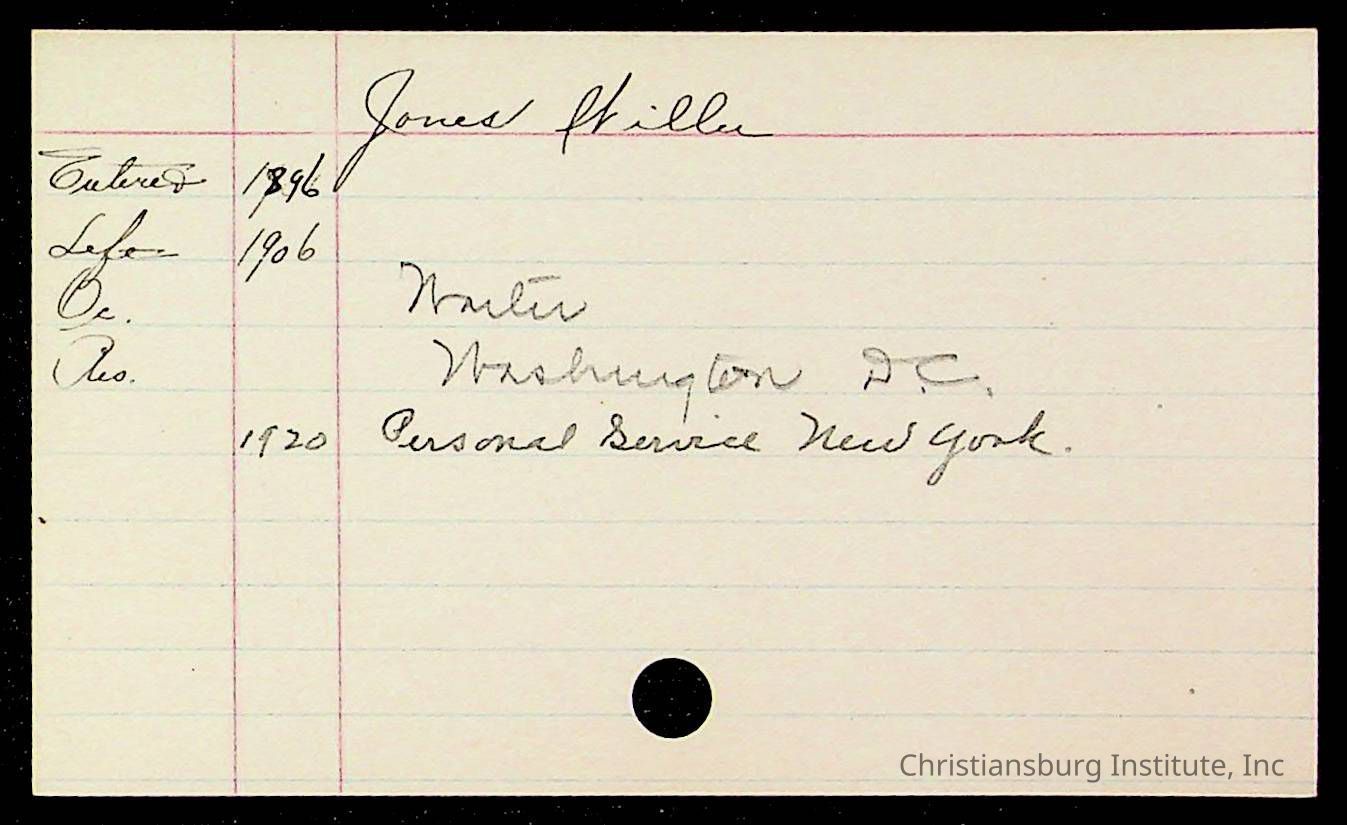 Jones Willie
Entered 1896
Left 1906
Oc. Waiter
Res. Washington D.C.
1920 Personal Service New York.
Christiansburg Institute, Inc